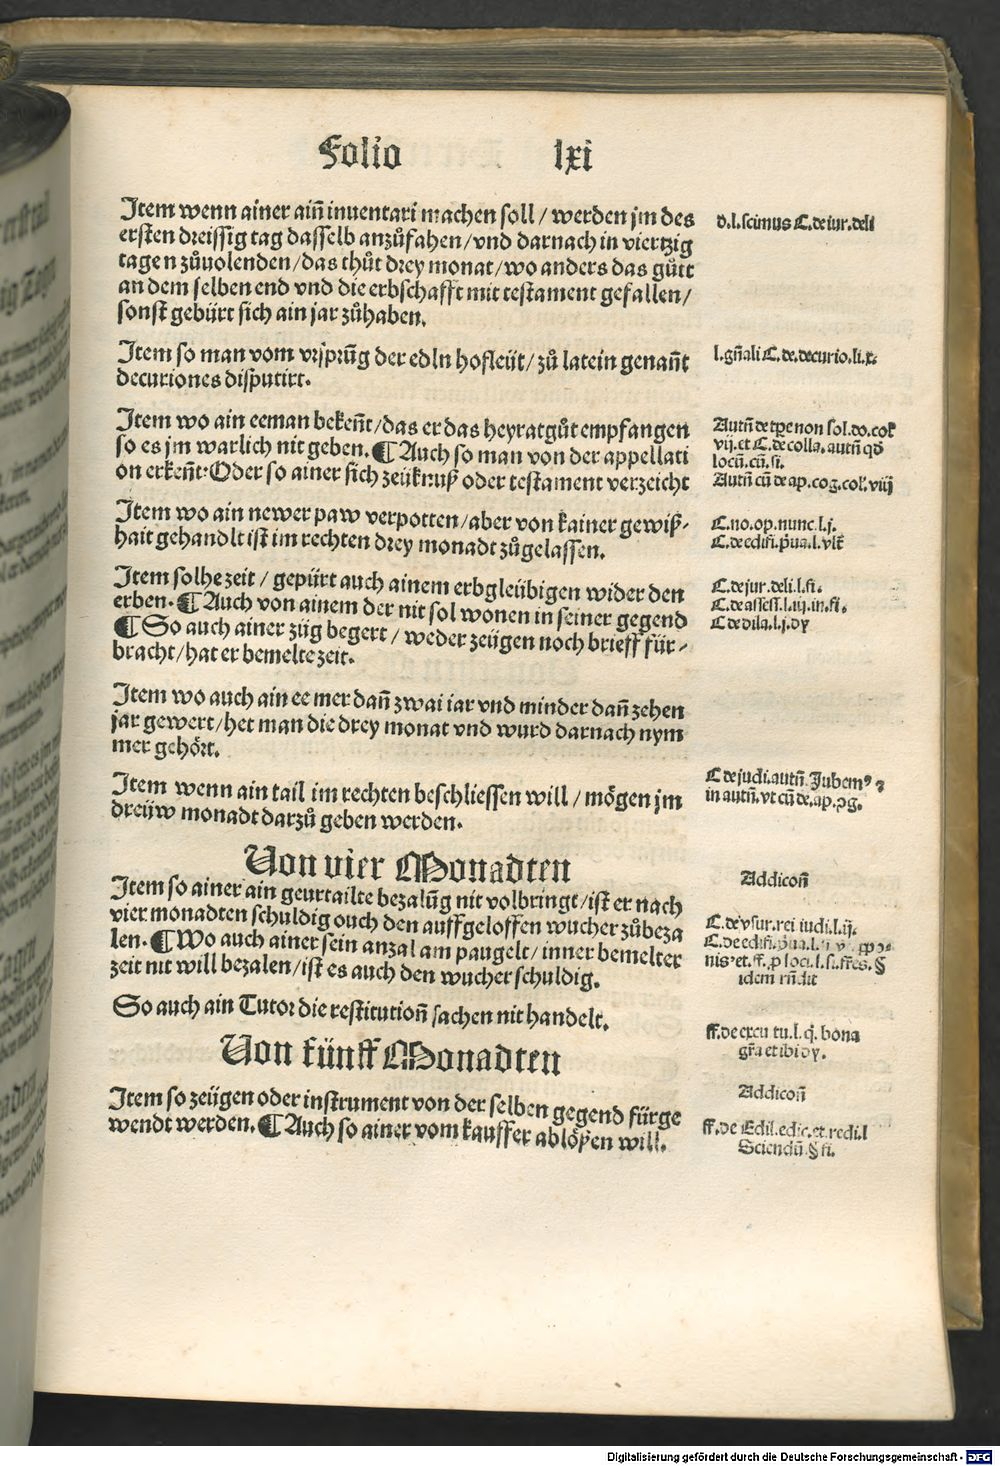 Folio lxi
Item wenn ainer aiñ inuentari machen soll / werden jm des
ersten dreissig tag dasselb anzůfahen / vnd darnach in viertzig
tagen zůuolenden / das thůt drey monat / wo anders das gůtt
an dem selben end vnd die erbschafft mit testament gefallen /
sonst gebürt sich ain jar zůhaben.
d.l.scimus C.de iur.deli
Item so man vom vrsprūg der edln hofleüt / zů latein genañt
decuriones disputirt.
l.gñali C.de.decurio.li.x.
Item wo ain eeman bekeñt / das er das heyratgůt empfangen
so es jm warlich nit geben. ¶ Auch so man von der appellati
on erkeñt. Oder so ainer sich zeüknuß oder testament verzeicht
Autñ de tpe non sol.do.col
vij.et C.de colla.autñ qd
locū.cū.si.
Autñ cū de ap.cog.col.viij
Item wo ain newer paw verpotten / aber von kainer gewiß-
hait gehandlt ist im rechten drey monadt zůgelassen.
C.no.op.nunc.l.j.
C.de edifi.p̄ua.l.vlt̄
Item solhe zeit / gepürt auch ainem erbgleübigen wider den
erben. ¶ Auch von ainem der nit sol wonen in seiner gegend
¶ So auch ainer züg begert / weder zeügen noch brieff für-
bracht / hat er bemelte zeit.
C.de jur.deli.l.fi.
C.de assess.l.iij.in.fi.
C de dila.l.j.
Item wo auch ain ee mer dañ zwai iar vnd minder dañ zehen
jar gewert / het man die drey monat vnd wurd darnach nym
mer gehört.
Item wenn ain tail im rechten beschliessen will / mögen jm
dreüw monadt darzů geben werden.
C de judi.autñ. Jubem⁹ ⁊
in autñ.vt cū de.ap.
Von vier Monadten
Item so ainer ain geurtailte bezalūg nit volbringt / ist er nach
vier monadten schuldig ouch den auffgeloffen wucher zůbeza
len. ¶ Wo auch ainer sein anzal am paugelt / inner bemelter
zeit nit will bezalen / ist es auch den wucher schuldig.
Addicoñ
C.de vsur.rei iudi.l.ij.
C.de edifi.p̄ua.l.
nis et.ff.p̄ loci.l.si.fr̄es.§
idem rñdit
So auch ain Tutor die restitutioñ sachen nit handelt.
ff.de excu tu.l.q̄.bona
gr̄a et ibi
Von fünff Monadten
Item so zeügen oder instrument von der selben gegend fürge
wendt werden. ¶ Auch so ainer vom kauffer ablößen will.
Addicoñ
ff.de Edil.edic.et.redi.l
Sciendū.§ fi.
Digitalisierung gefördert durch die Deutsche Forschungsgemeinschaft - DFG